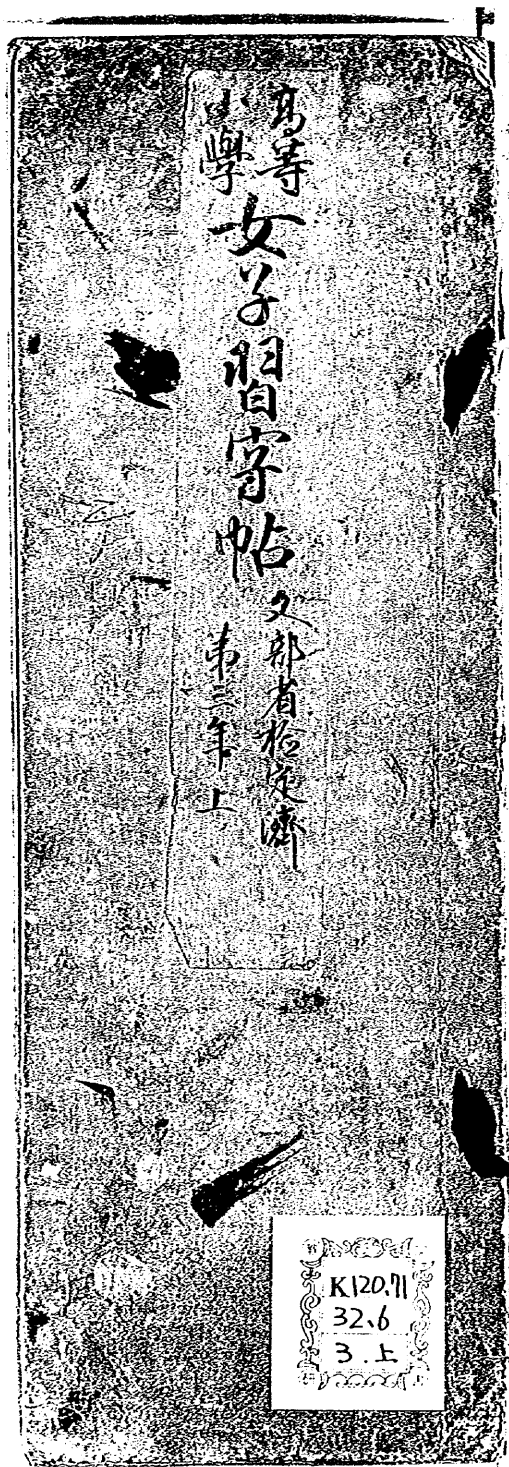 高等
小學
女子習字帖
文部省檢定濟
第三年上
K120.71
32.6
3.上